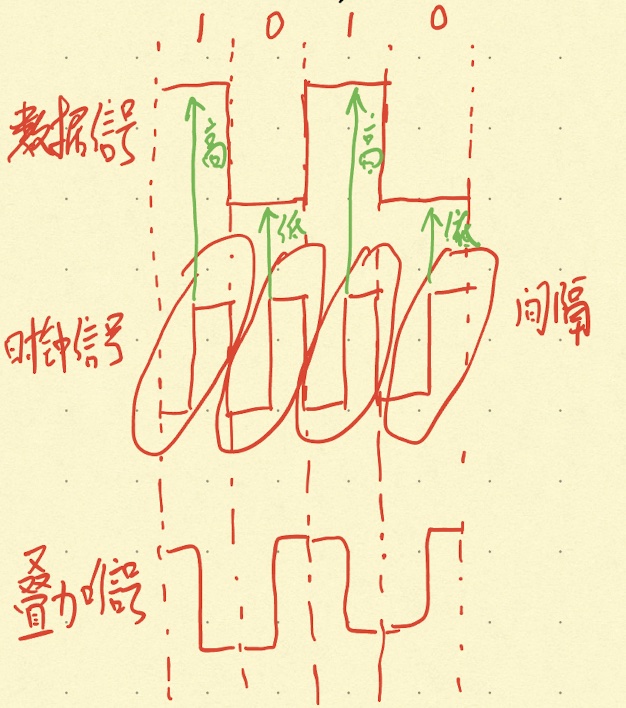 1 0 1 0
数据信号
高 低 高 低
时钟信号
间隔
叠加信号